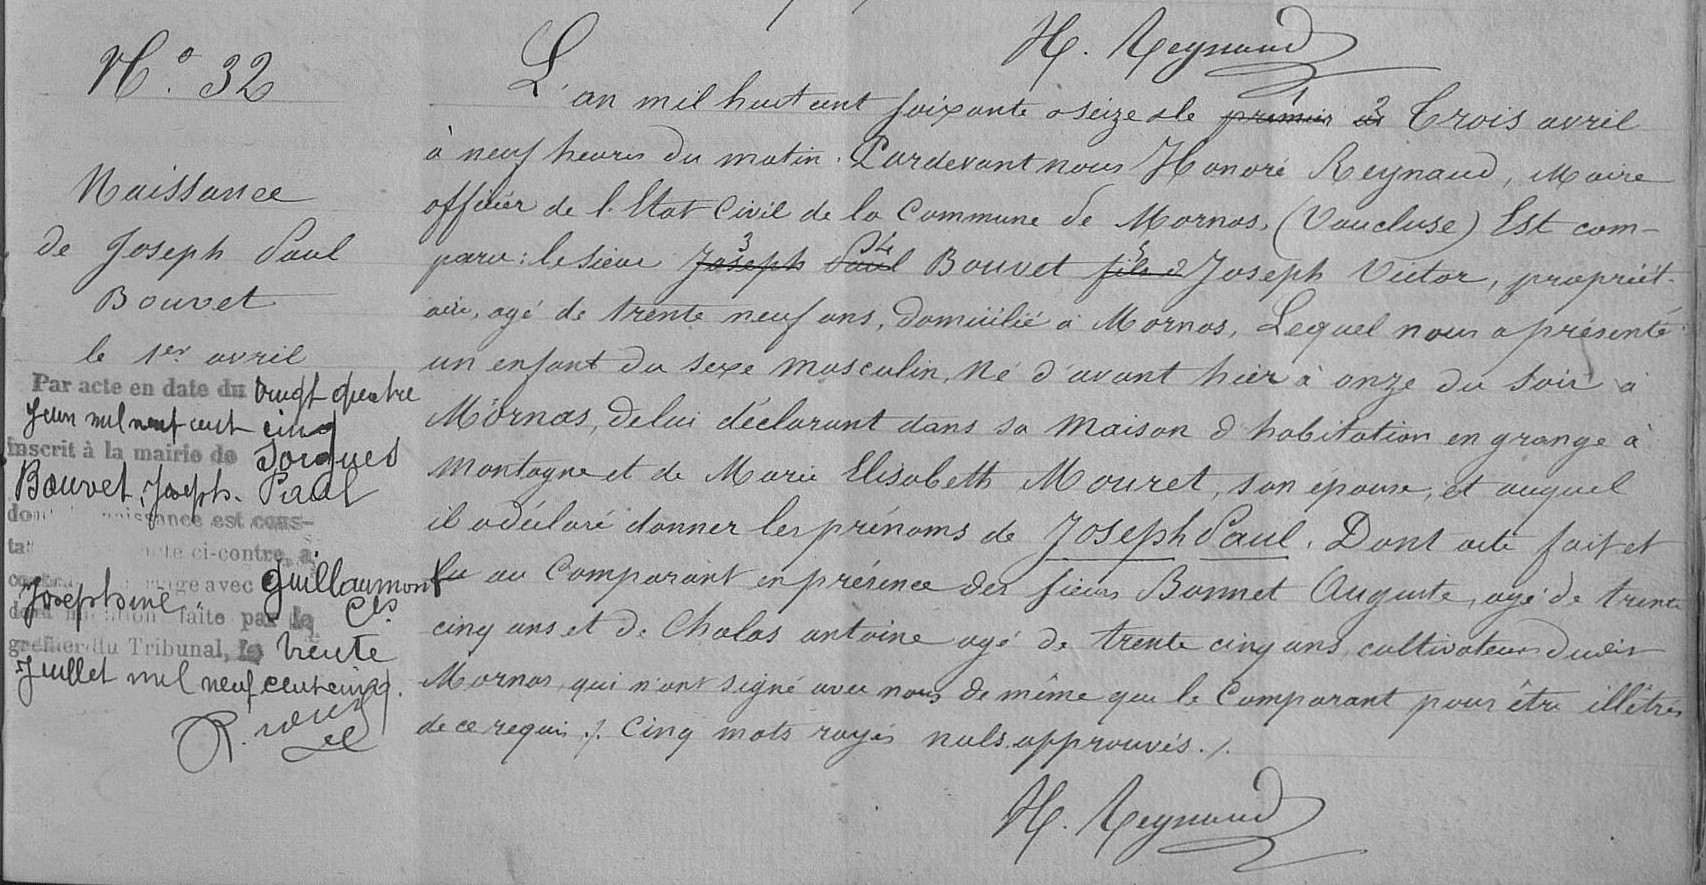 H. Reynaud
N.o 32
Naissance
de Joseph Paul
Bouvet
le 1er avril
Par acte en date du vingt quatre
Juin mil neuf cent cinq
inscrit à la mairie de Sorgues
Bouvet, Joseph. Paul
naissance est cons-
te ci-contre, a
avec Guillaumont
Joséphine
faite par le
greffier du Tribunal, le trente
Juillet mil neuf cent cinq.
L'an mil huit cent soixante seize & le premier 2 Trois avril
à neuf heures du matin. Pardevant nous Honoré Reynaud, Maire
officier de l'Etat Civil de la Commune de Mornas, (Vaucluse) Est com-
paru: le sieur Joseph Paul Bouvet fils d Joseph Victor, propriét-
aire, agé de trente neuf ans, domicilié à Mornas, Lequel nous a présenté
un enfant du sexe masculin, né d'avant hier à onze du soir à
Mornas, de lui déclarant dans sa maison d'habitation en grange à
montagne et de Marie Elisabeth Mouret, son épouse, et auquel
il a déclaré donner les prénoms de Joseph Paul. Dont acte fait et
lu au Comparant en présence des sieurs Bonnet Auguste, agé de trente
cinq ans et de Chalas antoine agé de trente cinq ans cultivateurs dudit
Mornas, qui n'ont signé avec nous de même que le Comparant pour être illétrés
de ce requis ./. Cinq mots rayés nuls approuvés ./.
H. Reynaud